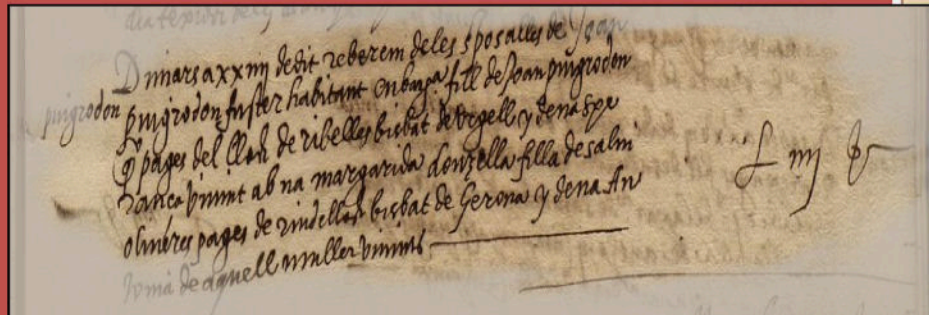 Dimars a xxiiij dedit reberem deles sposalles de Joan
puigrodon
puigrodon fuster habitant en barᵃ. fill de Joan puigrodon
q̊ pages del lloch de ribelles bisbat de Urgell y dena Spe
ransa vivint ab na margarida donzella filla de salvi
oliveres pages de vindellas bisbat de Gerona y dena An
tonia de aquell muller vivints
ꝉ iiij ß